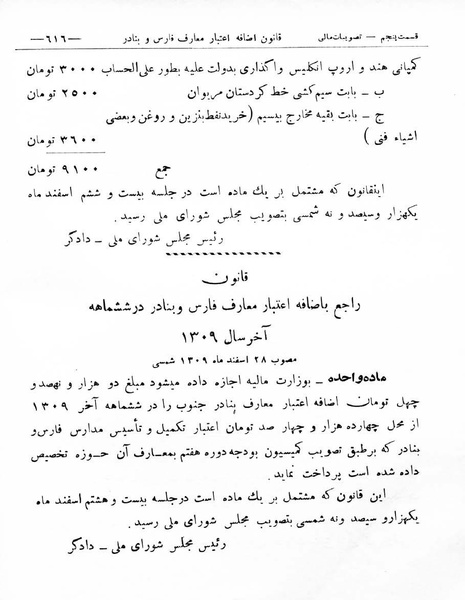 قسمت پنجم — تصویبات مالی    قانون اضافه اعتبار معارف فارس و بنادر    —۶۱۶—
کمپانی هند و اروپ انگلیس واگذاری بدولت علیه بطور علی‌الحساب ۳۰۰۰ تومان
ب ــ بابت سیم‌کشی خط کردستان مریوان ۲۵۰۰ تومان
ج ــ بابت بقیه مخارج بیسیم (خرید نفط بنزین و روغن و بعضی
اشیاء فنی ) ۳۶۰۰ تومان
جمع ۹۱۰۰ تومان
اینقانون که مشتمل بر یك ماده است در جلسه بیست و ششم اسفند ماه
یکهزار و سیصد و نه شمسی بتصویب مجلس شورای ملی رسید.
رئیس مجلس شورای ملی ــ دادگر
قانون
راجع باضافه اعتبار معارف فارس و بنادر در ششماهه
آخر سال ۱۳۰۹
مصوب ۲۸ اسفند ماه ۱۳۰۹ شمسی
ماده واحده ــ بوزارت مالیه اجازه داده میشود مبلغ دو هزار و نهصد و
چهل تومان اضافه اعتبار معارف بنادر جنوب را در ششماهه آخر ۱۳۰۹
از محل چهارده هزار و چهار صد تومان اعتبار تکمیل و تأسیس مدارس فارس و
بنادر که بر طبق تصویب کمیسیون بودجه دوره هفتم بمعارف آن حوزه تخصیص
داده شده است پرداخت نماید.
این قانون که مشتمل بر یك ماده است در جلسه بیست و هشتم اسفند ماه
یکهزار و سیصد و نه شمسی بتصویب مجلس شورای ملی رسید.
رئیس مجلس شورای ملی ــ دادگر